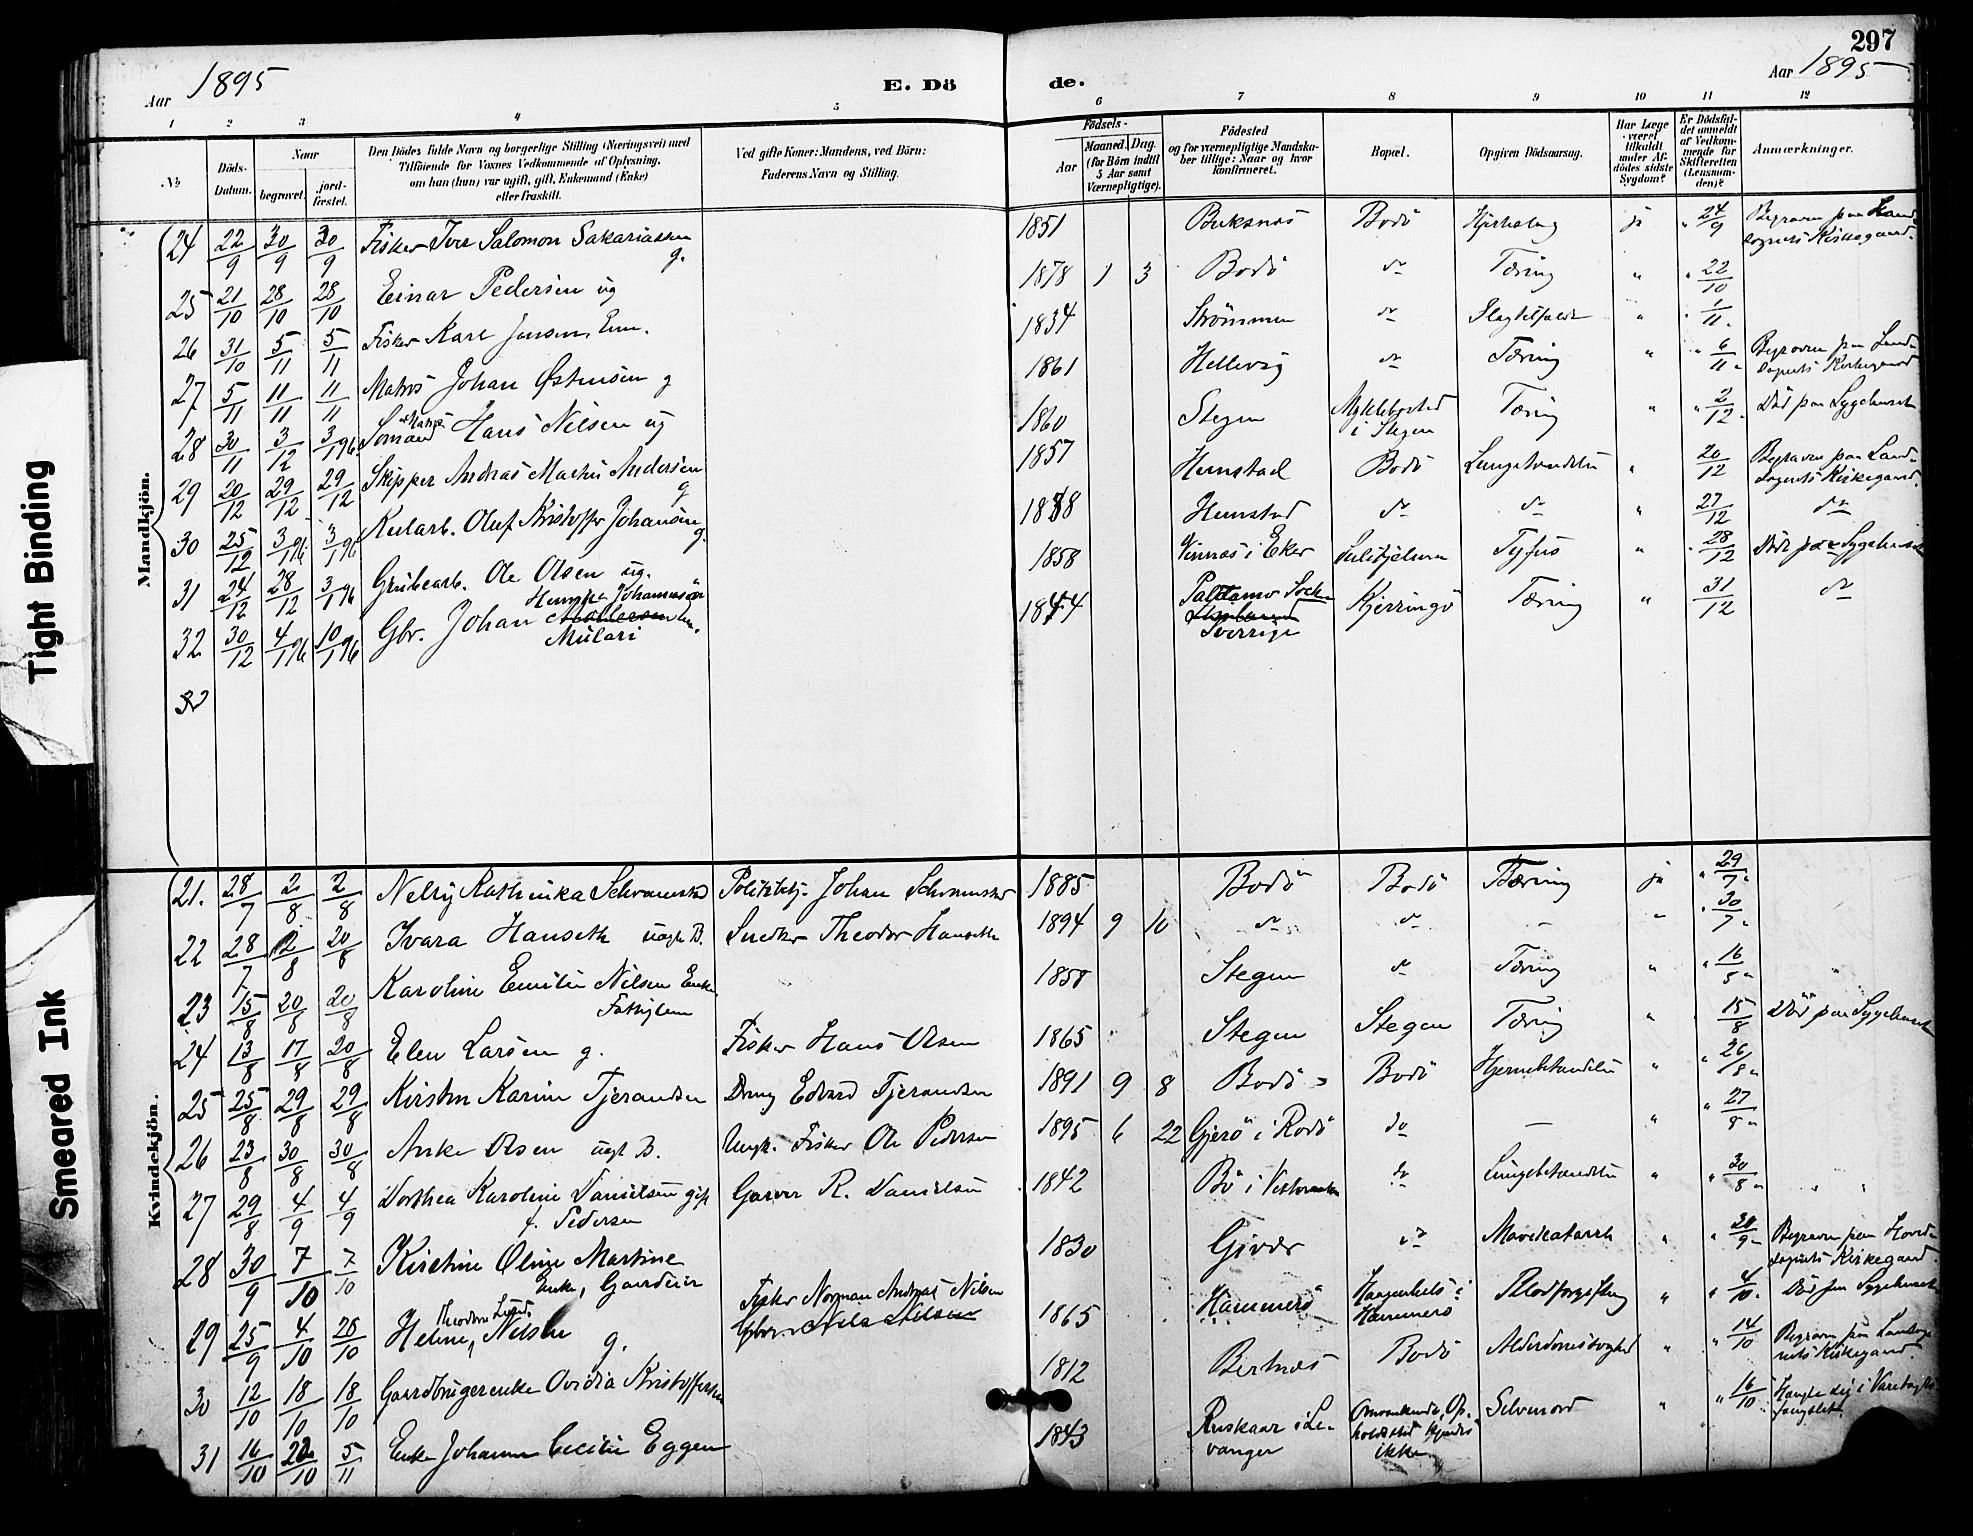 297
Aar 1895
E. Dö de.
Aar 1895
1 2 3 4 5 6 7 8 9 10 11 12
No
Döds-Datum.
Naar
begravet.
jord-fæstet.
Den Dödes fulde Navn og borgerlige Stilling (Næringsvei) med
Tilföiende for Voxnes Vedkommende af Oplysning,
om han (hun) var ugift, gift, Enkemand (Enke)
eller fraskilt.
Ved gifte Koner: Mandens, ved Börn:
Faderens Navn og Stilling.
Födsels-
Aar
Maaned. Dag.
(for Börn indtil
5 Aar samt
Værnepligtige).
Födested
og for værnepligtige Mandska-
ber tillige: Naar og hvor
konfirmeret.
Bopæl.
Opgiven Dödsaarsag.
Har Læge
været
tilkaldt
under Af-
dödes sidste
Sygdom?
Er Dödsfal-
det anmeldt
af Vedkom-
mende for
Skifteretten
(Lensman-
den)?
Anmærkninger.
Mandkjön.
24 22/9 30/9 30/9 Fisker Salomon Sakariassen g. 1851 Buksnæs Bodö ja 24/9 Begraven paa Land-
sognets Kirkegaard.
25 21/10 28/10 28/10 Einar Pedersen ug 1878 1 3 Bodö do Tæring " 22/10
26 31/10 5/11 5/11 Fisker Karl Jensen, Em. 1834 Strömmen do Slagtilfælde " 1/11
27 5/11 11/11 11/11 Matros Johan Østensen g 1861 Hellevig do Tæring " 6/11 Begraven paa Land-
sognets Kirkegaard
28 30/11 3/12 3/1 96 Sömand Hans Nilsen ug 1860 Stegen Myklebostad
i Stegen Tæring " 2/12 Död paa Sygehuset
29 20/12 29/12 29/12 Skipper Andreas Martin Andersen g 1857 Hemstad Bodö Lungebetændelse " 20/12 Begraven paa Land-
sognets Kirkegaard.
30 25/12 3/1 96 3/1 96 Kularb. Oluf Kristoffer Johansen g. Hemstad do do " 27/12 do
31 24/12 28/12 3/1 96 Grubearb. Ole Olsen ug. 1858 Vinnæs i Eker Sulitjelma Tyfus " 28/12 Död paa Sygehuset
32 30/12 4/1 96 10/1 96 Gbr. Johan Johannson
Mulari 1844 Paldamo Sockn
Sverrige Kjerringö Tæring " 31/12 do
32
Kvindekjön.
21. 28/7 2/8 2/8 Nelly Kathinka Politibtj. Johan 1885 Bodö Bodö Tæring ja 29/7
22 28/7 2/8 20/8 Ivara Hanseth uægte B. Snedker Theodor Hanseth 1894 9 10 do do - " 30/7
23 15/8 20/8 20/8 Karoline Emilie Nilsen Enke
Fattiglem 1858 Stegen do Tæring " 16/8
24 13/8 17/8 20/8 Elen Larsen g. Fisker Hans Olsen 1865 Stegen Stegen Tæring " 15/8 Död paa Sygehuset
25 25/8 29/8 29/8 Kirsten Karine Tjerandsen Edvard Tjerandsen 1891 9 8 Bodö Bodö Hjernebetændelse " 26/8
26 23/8 30/8 30/8 Anke Olsen uægt B. Ungk. Fisker Ole Pedersen 1895 6 22 Gjerö i Rödö do - " 27/8
27 29/8 4/9 4/9 Dorthea Karoline Danielsen gift
f. Pedersen Garver R. Danielsen 1842 Bö i Vesteraalen do Lungebetændelse " 30/8
28 30/9 7/10 7/10 Kirstine Oline Martine
Enke, 1830 Givær do Mavekatarrh " 30/9 Begraven paa
sognets Kirkegaard
29 25/9 4/10 28/10 Helene Theodora Nilsen g. Fisker Norman Andreas Nilsen
Nils Nilsen 1865 Hammerö
Hammerö Blodforgiftning " 4/10 Död paa Sygehuset
30 12/10 18/10 18/10 Gaardbrugerenke Ovidia Kristoffersen 1812 Bertnæs Bodö Alderdomssvaghed " 14/10 Begraven paa Landsog-
nets Kirkegaard.
31 16/10 22/10 5/11 Enke Johanna Cecilie Eggen 1843 Ruskaar i Le-
vanger Omvankende, Op-
holdssted kjendes
ikke Selvmord " 16/10 Hængte sig i Varetægts-
fængslet.
Tight Binding
Smeared Ink